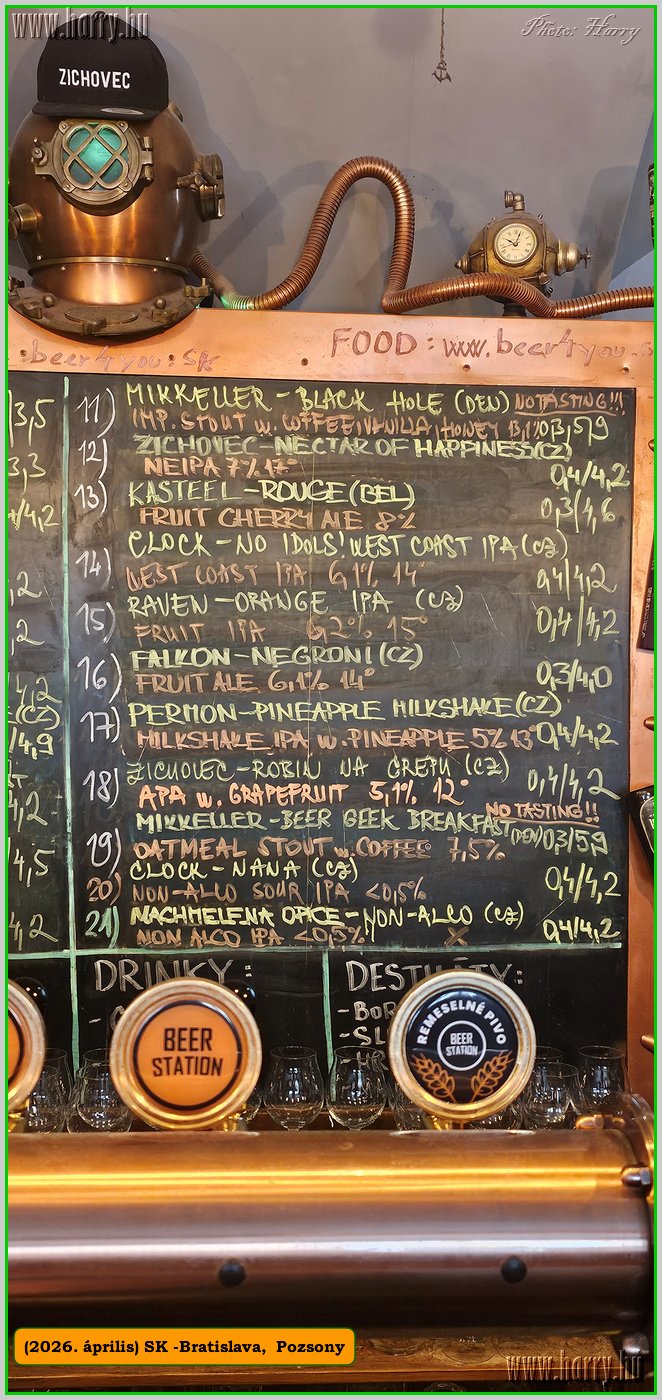 www.harry.hu
Photo: Harry
ZICHOVEC
.beer4you.sk
FOOD: www.beer4you.s
3,5
11) MIKKELLER - BLACK HOLE (DEN) NO TASTING!!!
IMP. STOUT w. COFFEE, VANILLA, HONEY 13,1% 0,3/5,9
3,3
12) ZICHOVEC - NECTAR OF HAPPINESS (CZ)
NEIPA 7% 17° 0,4/4,2
/4,2
13) KASTEEL - ROUGE (BEL)
FRUIT CHERRY ALE 8% 0,3/4,6
14) CLOCK - NO IDOLS! WEST COAST IPA (CZ)
WEST COAST IPA 6,1% 14° 0,4/4,2
,2
15) RAVEN - ORANGE IPA (CZ)
FRUIT IPA 6,2% 15° 0,4/4,2
,2
16) FALKON - NEGRONI (CZ)
FRUIT ALE 6,1% 14° 0,3/4,0
4,2
(CZ)
17) PERMON - PINEAPPLE MILKSHAKE (CZ)
MILKSHAKE IPA w. PINEAPPLE 5% 13° 0,4/4,2
/4,9
18) ZICHOVEC - ROBIN NA GREPU (CZ)
APA w. GRAPEFRUIT 5,1% 12° 0,4/4,2
4,2
NO TASTING!!
19) MIKKELLER - BEER GEEK BREAKFAST (DEN) 0,3/5,9
OATMEAL STOUT w. COFFEE 7,5%
4,5
20) CLOCK - NANA (CZ)
NON-ALCO SOUR IPA <0,5% 0,4/4,2
21) NACHMELENA OPICE - NON-ALCO (CZ)
NON ALCO IPA <0,5% X 0,4/4,2
4,2
DRINKY:
DESTILÁTY:
- BOR
- SL
BEER
STATION
REMESELNÉ PIVO
BEER
STATION
(2026. április) SK -Bratislava, Pozsony
www.harry.hu